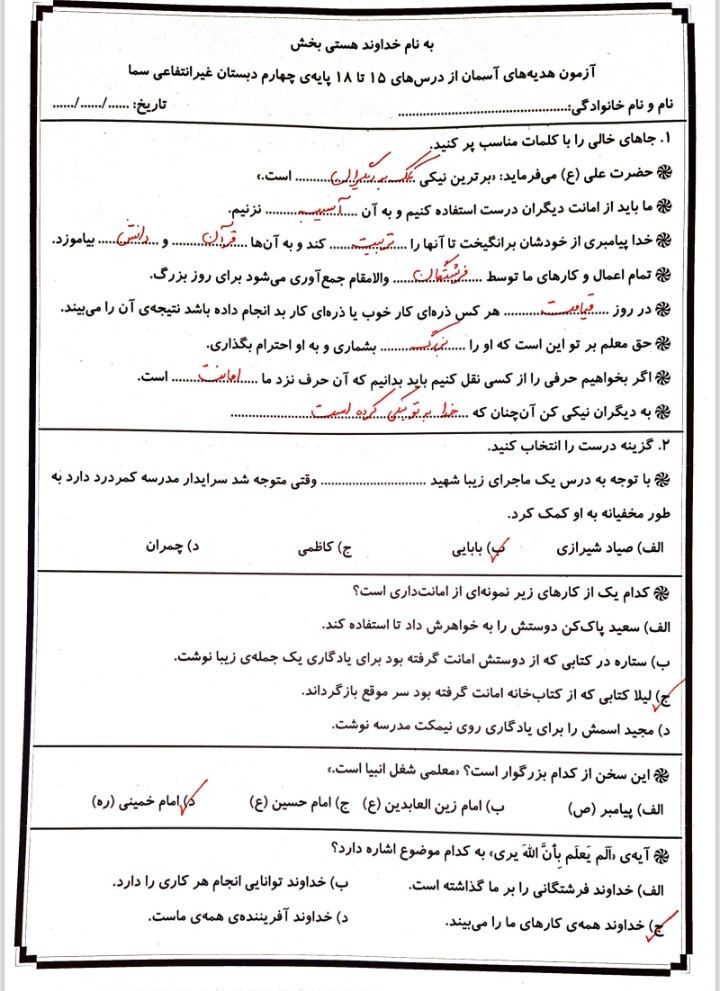 به نام خداوند هستی بخش
آزمون هدیه‌های آسمان از درس‌های ۱۵ تا ۱۸ پایه‌ی چهارم دبستان غیرانتفاعی سما
نام و نام خانوادگی:............................................ تاریخ: ....../....../......
۱. جاهای خالی را با کلمات مناسب پر کنید.
حضرت علی (ع) می‌فرماید: «برترین نیکی کمک به دیگران است.»
ما باید از امانت دیگران درست استفاده کنیم و به آن آسیب نزنیم.
خدا پیامبری از خودشان برانگیخت تا آنها را تربیت کند و به آن‌ها قرآن و دانش بیاموزد.
تمام اعمال و کارهای ما توسط فرشتگان والامقام جمع‌آوری می‌شود برای روز بزرگ.
در روز قیامت هر کس ذره‌ای کار خوب یا ذره‌ای کار بد انجام داده باشد نتیجه‌ی آن را می‌بیند.
حق معلم بر تو این است که او را بزرگ بشماری و به او احترام بگذاری.
اگر بخواهیم حرفی را از کسی نقل کنیم باید بدانیم که آن حرف نزد ما امانت است.
به دیگران نیکی کن آن‌چنان که خدا به تو نیکی کرده است
۲. گزینه درست را انتخاب کنید.
با توجه به درس یک ماجرای زیبا شهید ............................ وقتی متوجه شد سرایدار مدرسه کمردرد دارد به
طور مخفیانه به او کمک کرد.
الف) صیاد شیرازی ب) بابایی ج) کاظمی د) چمران
کدام یک از کارهای زیر نمونه‌ای از امانت‌داری است؟
الف) سعید پاک‌کن دوستش را به خواهرش داد تا استفاده کند.
ب) ستاره در کتابی که از دوستش امانت گرفته بود برای یادگاری یک جمله‌ی زیبا نوشت.
ج) لیلا کتابی که از کتاب‌خانه امانت گرفته بود سر موقع بازگرداند.
د) مجید اسمش را برای یادگاری روی نیمکت مدرسه نوشت.
این سخن از کدام بزرگوار است؟ «معلمی شغل انبیا است.»
الف) پیامبر (ص) ب) امام زین العابدین (ع) ج) امام حسین (ع) د) امام خمینی (ره)
آیه‌ی «اَلَم یَعلَم بِأنَّ اللهَ یری» به کدام موضوع اشاره دارد؟
الف) خداوند فرشتگانی را بر ما گذاشته است. ب) خداوند توانایی انجام هر کاری را دارد.
ج) خداوند همه‌ی کارهای ما را می‌بیند. د) خداوند آفریننده‌ی همه‌ی ماست.